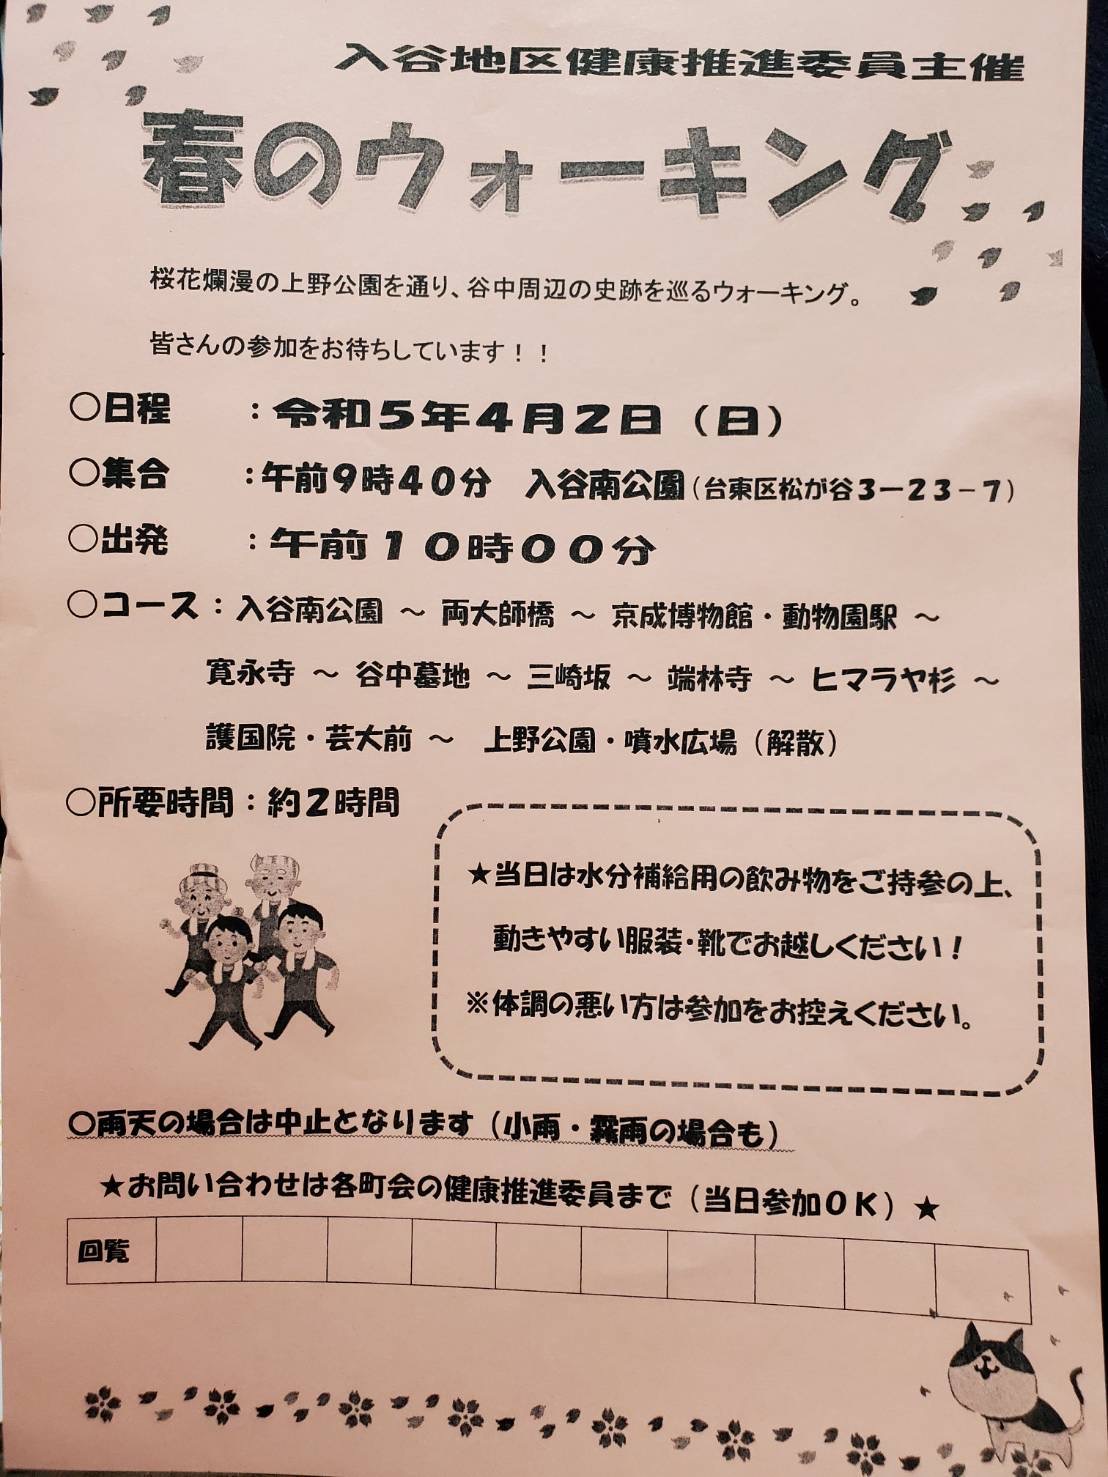 入谷地区健康推進委員主催
春のウォーキング
桜花爛漫の上野公園を通り、谷中周辺の史跡を巡るウォーキング。
皆さんの参加をお待ちしています！！
○日程　　：令和５年４月２日（日）
○集合　　：午前９時４０分　入谷南公園（台東区松が谷３－２３－７）
○出発　　：午前１０時００分
○コース：入谷南公園 ～ 両大師橋 ～ 京成博物館・動物園駅 ～
寛永寺 ～ 谷中墓地 ～ 三崎坂 ～ 端林寺 ～ ヒマラヤ杉 ～
護国院・芸大前 ～ 上野公園・噴水広場（解散）
○所要時間：約２時間
★当日は水分補給用の飲み物をご持参の上、
動きやすい服装・靴でお越しください！
※体調の悪い方は参加をお控えください。
○雨天の場合は中止となります（小雨・霧雨の場合も）
★お問い合わせは各町会の健康推進委員まで（当日参加ＯＫ）★
回覧